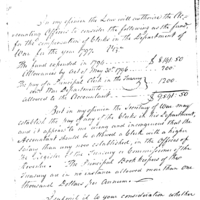 In my opinion the Law will authorise the Ac-
counting Officers to consider the following as the fund
for the compensation of Clerks in the Department of
War for the year 1797. Viz.
The fund expended in 1796 $ 8141.50
Allowances by Act of May 30th 1796 700
The pay of a principal Clerk in the
War Department
allowed to the Accountant 1200
But in my opinion the Secretary of War may
establish the pay of any of the Clerks in his Department,
and it appears to me wrong and incongruous that the
Accountant should be allowed a Clerk with a higher
Salary than any now established, in the offices of
the Register of the Treasury or Commissioner of the
Revenue. The Principal Book keepers of the
Treasury are in no instance allowed more than one
thousand Dollars per Annum.
I submit it to your consideration whether